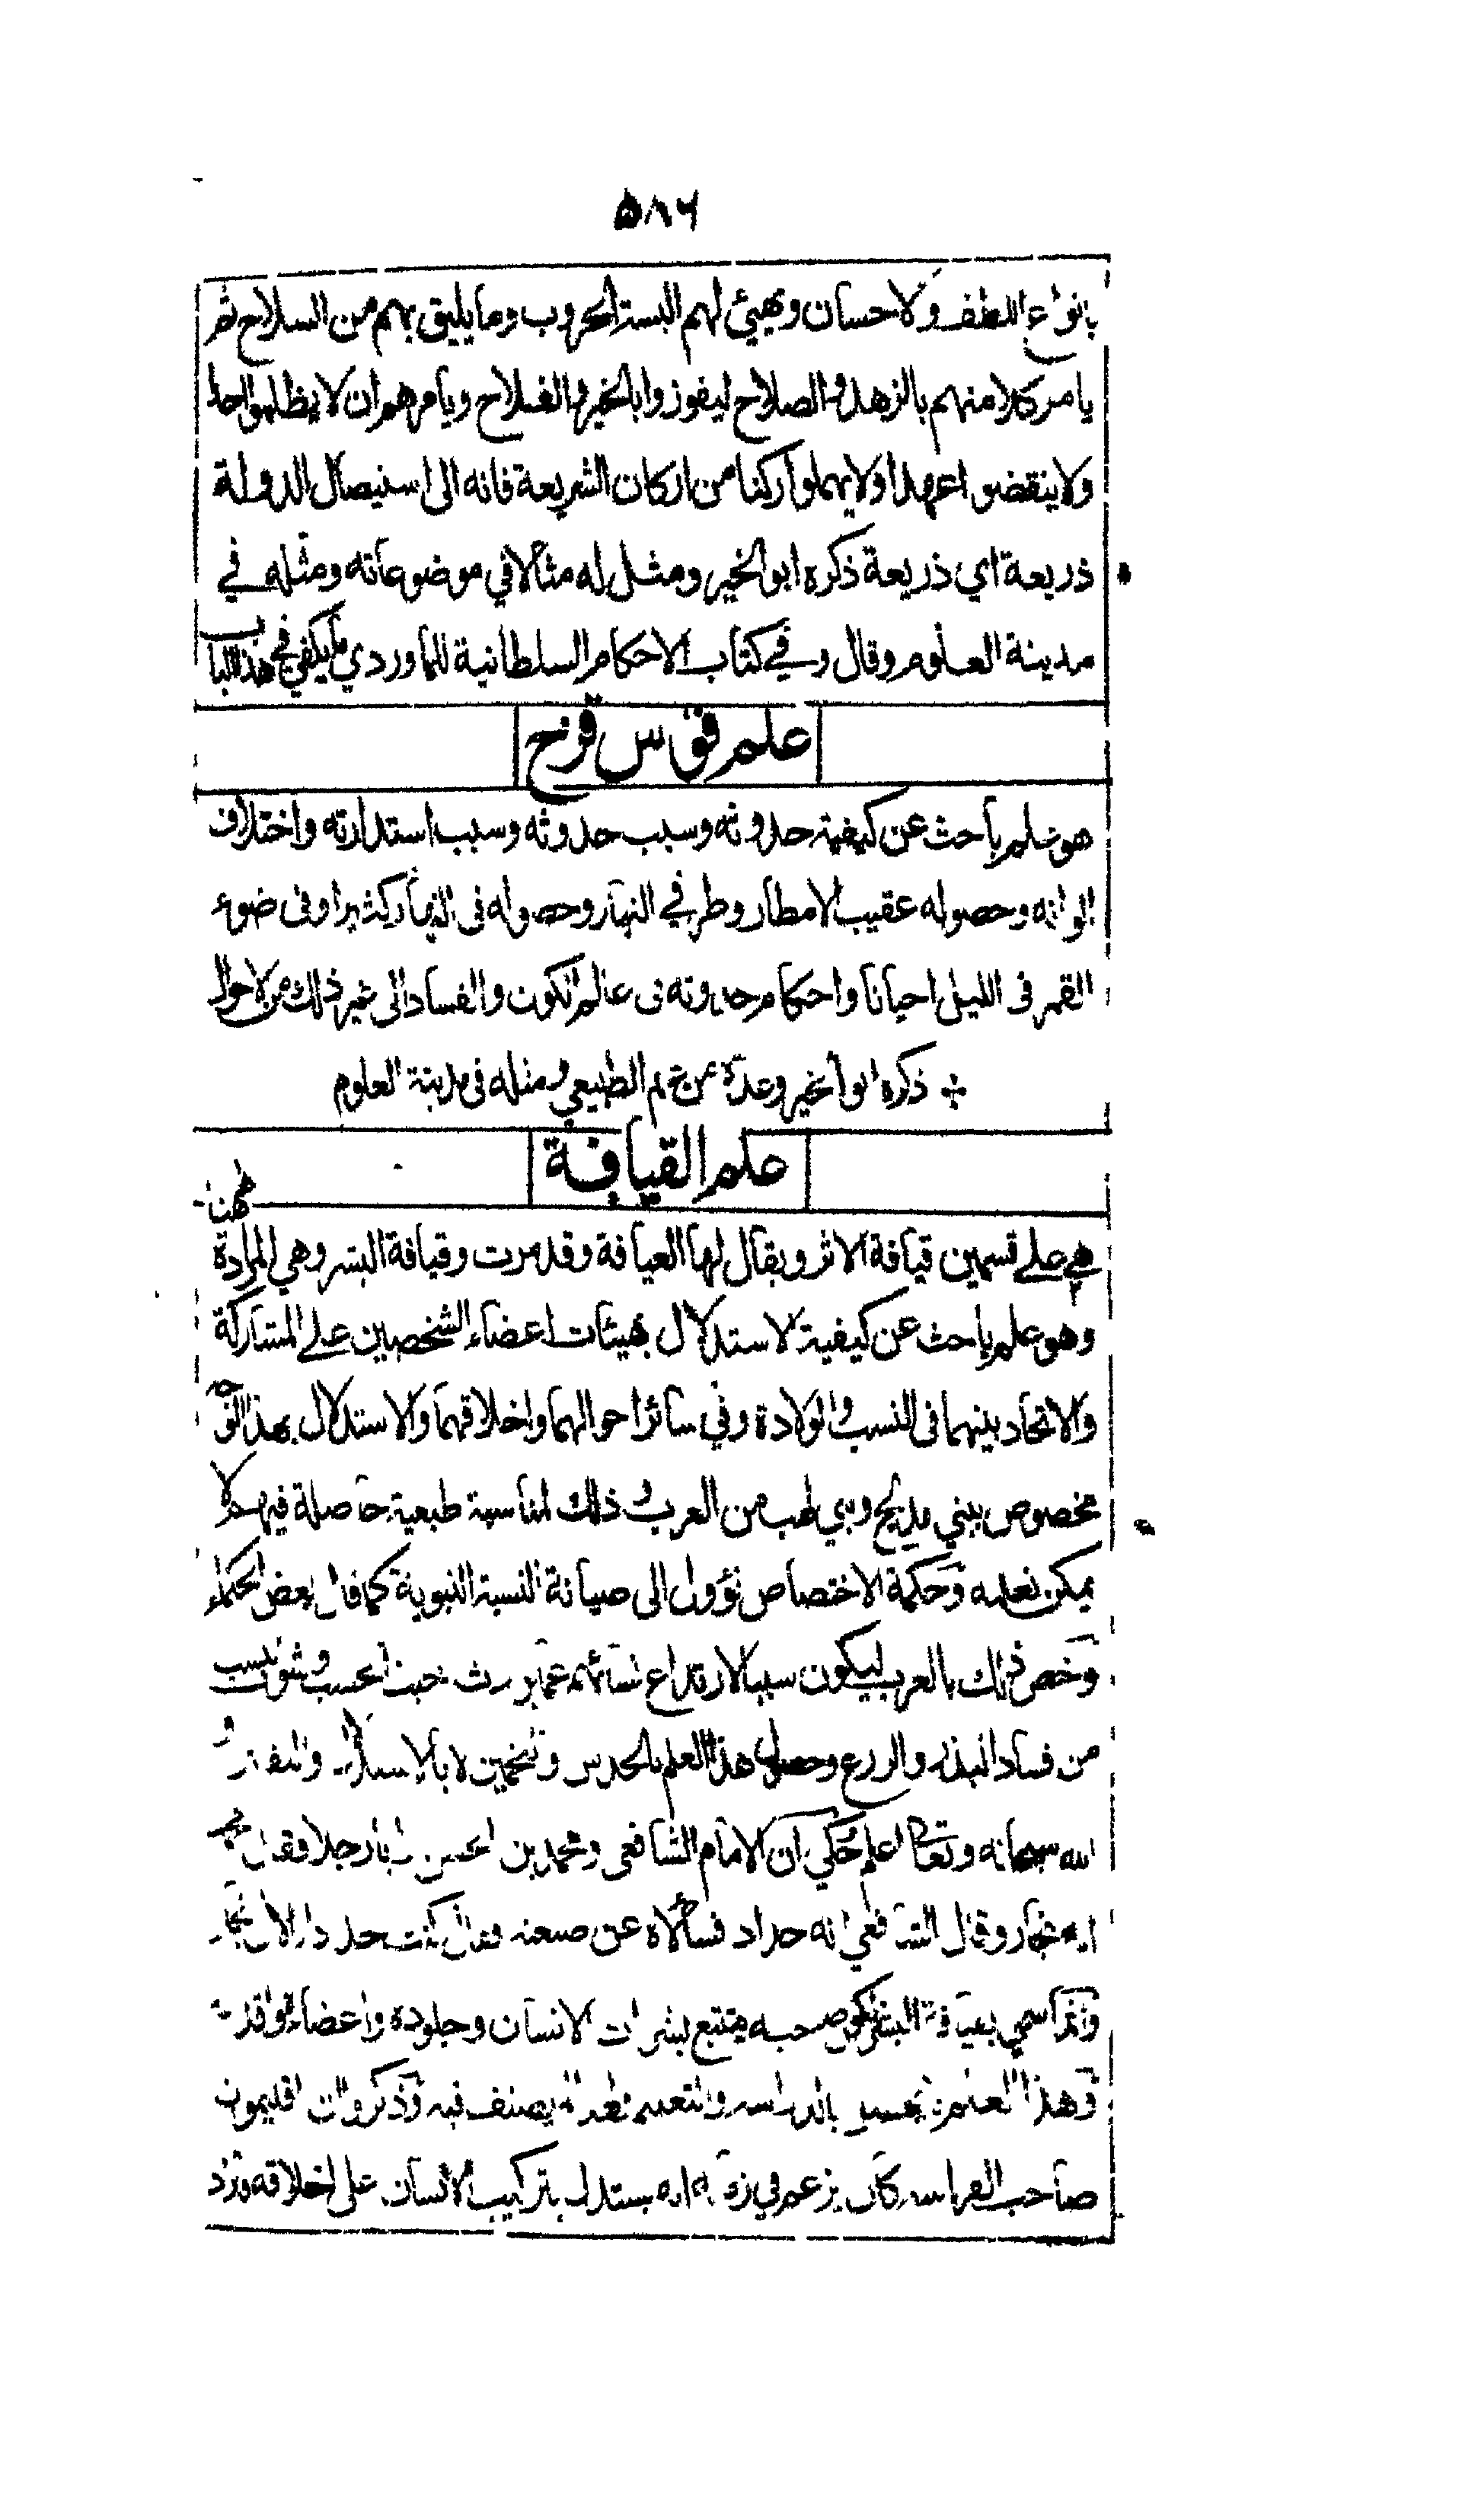 ۵۸۶
بانواع اللطف والاحسان ويهيئ لهم البسة الحروب وما يليق بهم من السلاح ثم
يامر كلا منهم بالزهد والصلاح ليفوزوا بالخير والفلاح ويامرهم ان لا يظلموا احدا
ولا ينقضوا عهدا ولا يهملوا ركنا من اركان الشريعة فانه الى استيصال الدولة
ذريعة اي ذريعة ذكره ابو الخير ومثل له مثالا في موضوعاته ومثله في
مدينة العلوم وقال وفي كتاب الاحكام السلطانية للماوردي ما يكفي في هذا الباب
علم قوس قزح
هو علم باحث عن كيفية حدوثه وسبب حدوثه وسبب استدارته واختلاف
الوانه وحصوله عقيب الامطار وطرفي النهار وحصوله في النهار كثيرا وفي ضوء
القمر في الليل احيانا واحكام حدوثه في عالم الكون والفساد الى غير ذلك من الاحوال
ذكره ابو الخير وعده من علم الطبيعي ومثله في مدينة العلوم
علم القيافة
هي على قسمين قيافة الاثر ويقال لها العيافة وقد مرت وقيافة البشر وهي المرادة ههنا
وهو علم باحث عن كيفية الاستدلال بهيئات اعضاء الشخصين على المشاركة
والاتحاد بينهما في النسب والولادة وفي سائر احوالهما واخلاقهما والاستدلال بهذا الوجه
مخصوص ببني مدلج وبني لهب من العرب وذلك لمناسبة طبعية حاصلة فيهم لا
يمكن تعلمه وحكمة الاختصاص تؤول الى صيانة النسبة النبوية كما قال بعض الحكماء
وخص ذلك بالعرب ليكون سببا لارتداع نسائهم عما يورث خبث الحسب وشوب النسب
من فساد البذر والزرع وحصول هذا العلم بالحدس والتخمين لا بالاستدلال واليقين و
الله سبحانه وتعالى اعلم حكي ان الامام الشافعي ومحمد بن الحسن رايا رجلا فقال محمد
انه نجار وقال الشافعي انه حداد فسألاه عن صنعته فقال كنت حدادا والان نجار
وانما سمي بقيافة البشر لكون صاحبه يتتبع بشرات الانسان وجلوده واعضاءه واقدامه
وهذا العلم لا يحصل بالدراسة والتعليم ولهذا لم يصنف فيه وذكروا ان اقليمون
صاحب الفراسة كان يزعم في زمانه انه يستدل بتركيب الانسان على اخلاقه فاراد